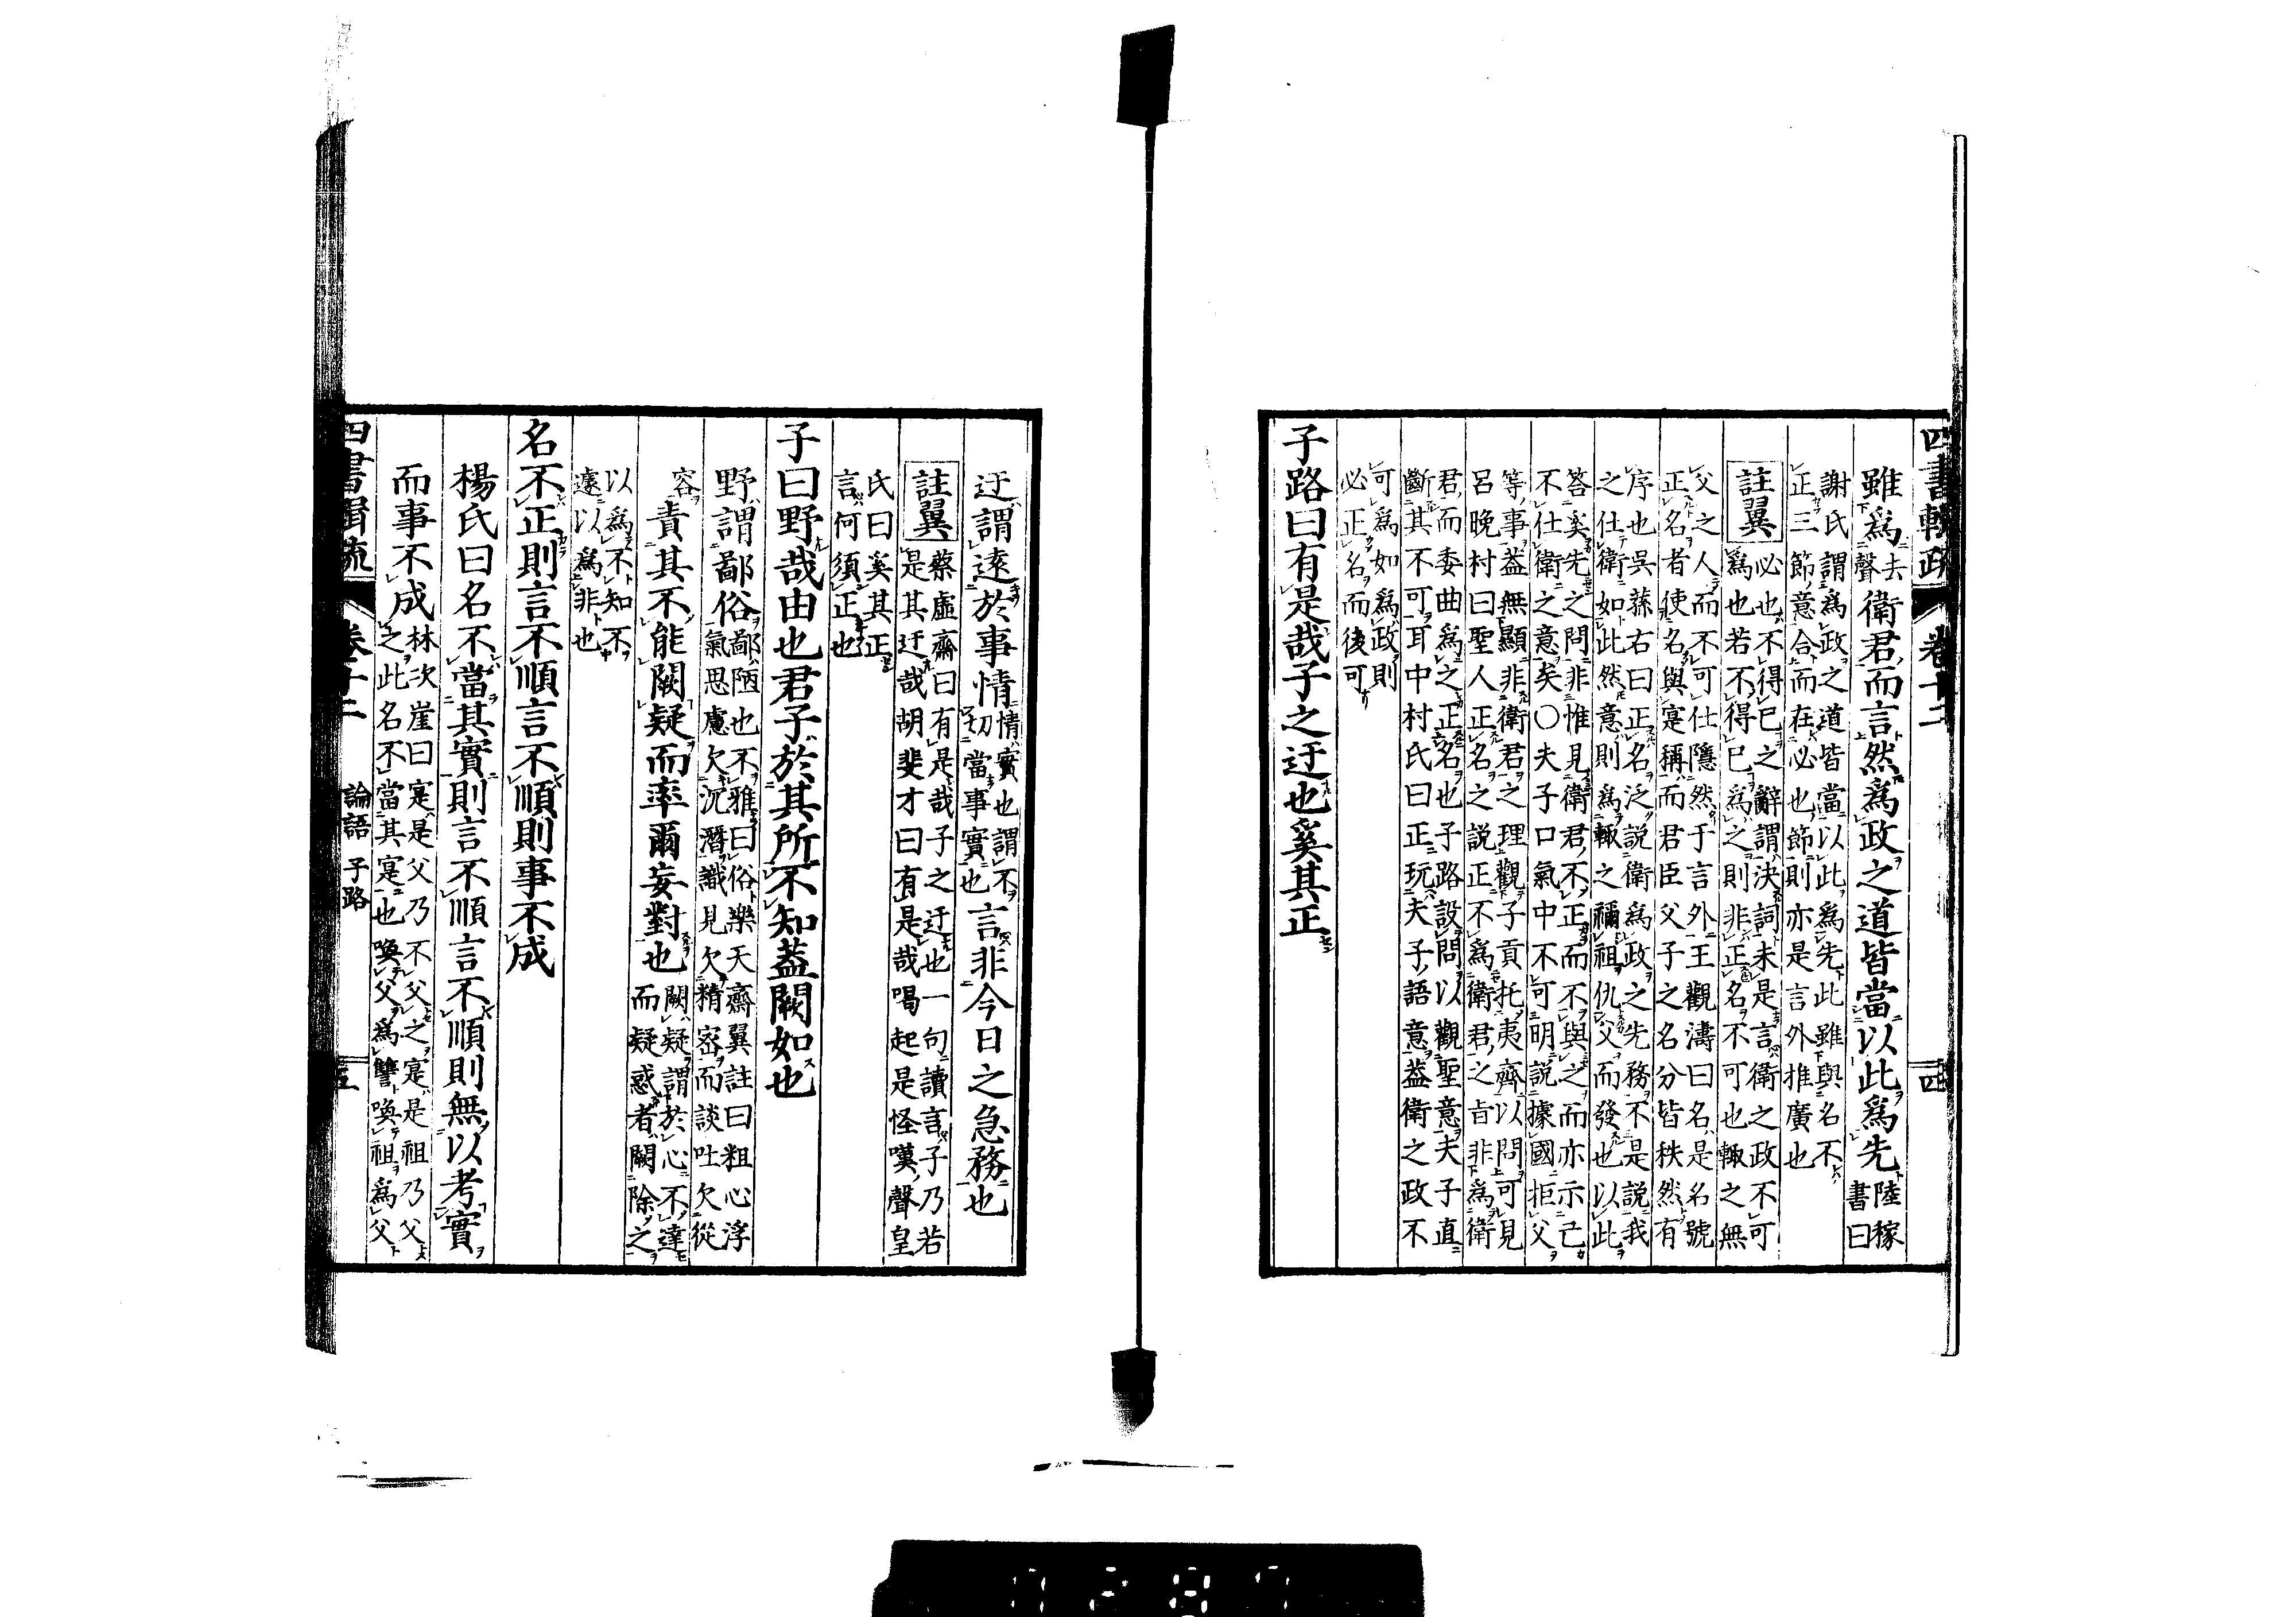 四書輯疏 卷十二 四
雖爲去聲衛君而言然爲政之道皆當以此爲先陸稼書曰
謝氏謂爲政之道皆當以此爲先此雖與名不
正三節意合而在必也節則亦是言外推廣也
註翼 必也不得已之辭謂決詞未是言衛之政不可
爲也若不得已爲之則非正名不可也輒之無
父之人而不可仕隱然于言外王觀濤曰名是名號
正名者使名與寔稱而君臣父子之名分皆秩然有
序也吳蓀右曰正名泛說衛爲政之先務不是說我
之仕衛如此然意則爲輒之禰祖仇父而發也以此
答奚先之問非惟見衛君不正而不與之而亦示己
不仕衛之意矣〇夫子口氣中不可明說據國拒父
等事蓋無顯非衛君之理觀子貢托夷齊以問可見
呂晚村曰聖人正名之說正不爲衛君之旨非爲衛
君而委曲爲之正名也子路設問以觀聖意夫子直
斷其不可耳中村氏曰正玩夫子語意蓋衛之政不
可爲如爲政則
必正名而後可
子路曰有是哉子之迂也奚其正
迂謂遠於事情情實也謂不切當事實也言非今日之急務也
註翼 蔡虛齋曰有是哉子之迂也一句讀言子乃若
是其迂哉胡斐才曰有是哉喝起是怪嘆聲皇
氏曰奚其正
言何須正也
子曰野哉由也君子於其所不知蓋闕如也
野謂鄙俗鄙陋也不雅曰俗樂天齋翼註曰粗心浮
氣思慮欠沉潛識見欠精密而談吐欠從
容責其不能闕疑而率爾妄對也闕疑謂於心不達
而疑惑者闕除之
以爲不知不
遠以爲非也
名不正則言不順言不順則事不成
楊氏曰名不當其實則言不順言不順則無以考實
而事不成林次崖曰寔是父乃不父之寔是祖乃父
之此名不當其寔也喚父爲讐喚祖爲父
四書輯疏 卷十二 論語 子路 五